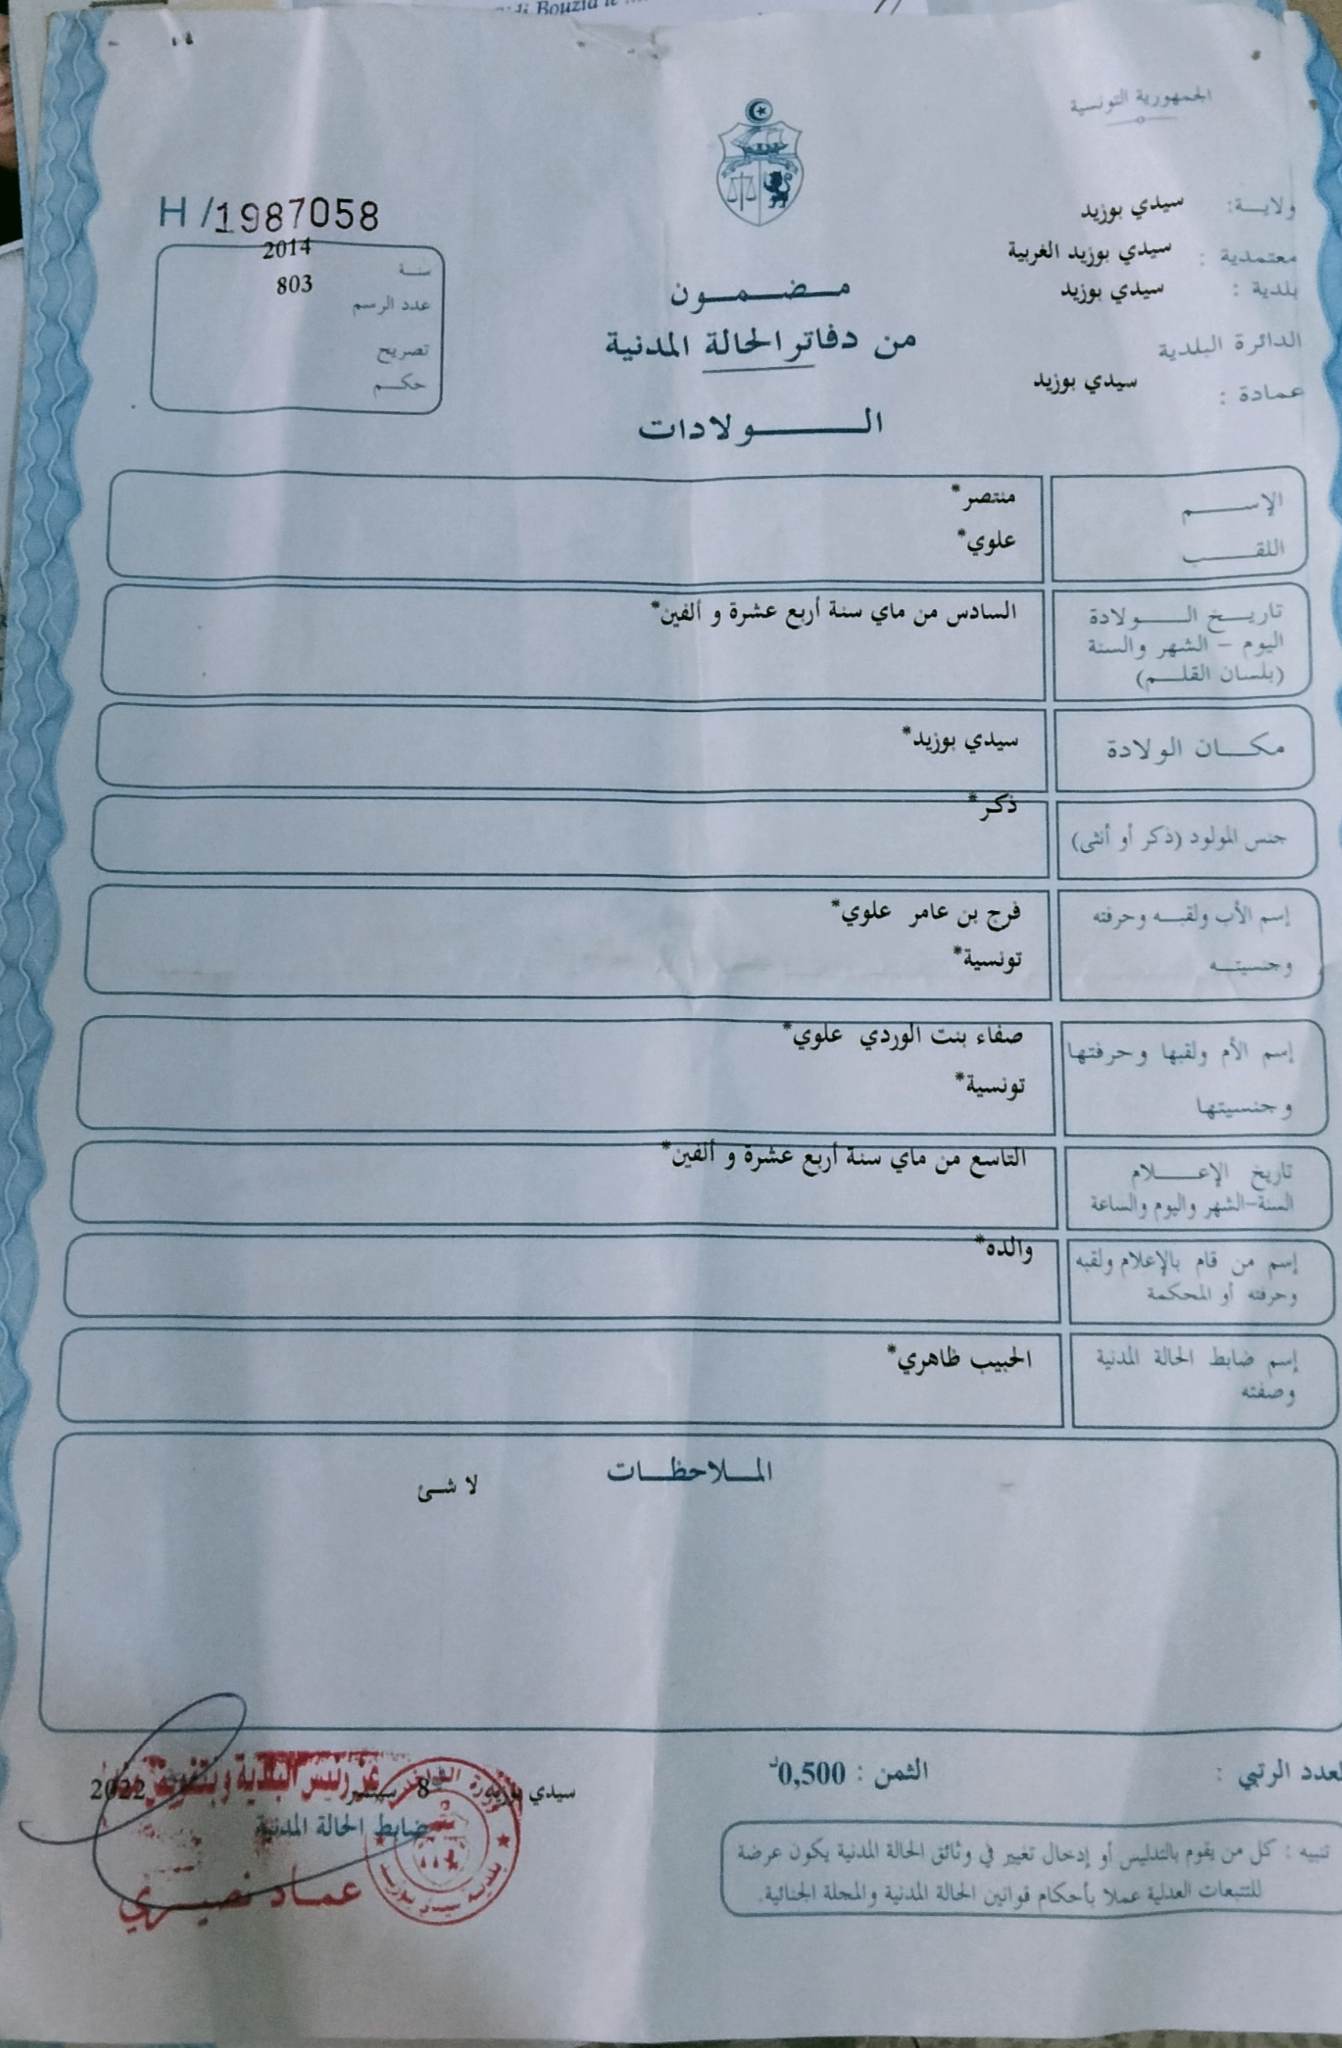 الجمهورية التونسية
ولاية: سيدي بوزيد
معتمدية : سيدي بوزيد الغربية
بلدية : سيدي بوزيد
الدائرة البلدية
عمادة : سيدي بوزيد
H /1987058
سنة 2014
عدد الرسم 803
تصريح
حكم
مضمون
من دفاتر الحالة المدنية
الولادات
الإسم منتصر*
اللقب علوي*
تاريخ الولادة السادس من ماي سنة أربع عشرة و ألفين*
اليوم - الشهر والسنة
(بلسان القلم)
مكان الولادة سيدي بوزيد*
جنس المولود (ذكر أو أنثى) ذكر*
إسم الأب ولقبه وحرفته فرج بن عامر علوي*
وجنسيته تونسية*
إسم الأم ولقبها وحرفتها صفاء بنت الوردي علوي*
وجنسيتها تونسية*
تاريخ الإعلام التاسع من ماي سنة أربع عشرة و ألفين*
السنة-الشهر واليوم والساعة
إسم من قام بالإعلام ولقبه والده*
وحرفته أو المحكمة
إسم ضابط الحالة المدنية الحبيب ظاهري*
وصفته
الملاحظات
لا شئ
العدد الرتبي :
الثمن : 0,500د
تنبيه : كل من يقوم بالتدليس أو إدخال تغيير في وثائق الحالة المدنية يكون عرضة
للتتبعات العدلية عملا بأحكام قوانين الحالة المدنية والمجلة الجنائية.
سيدي بوزيد 8 سبتمبر 2022
عن رئيس البلدية وبتفويض منه
ضابط الحالة المدنية
عماد نصيري
بلدية سيدي بوزيد